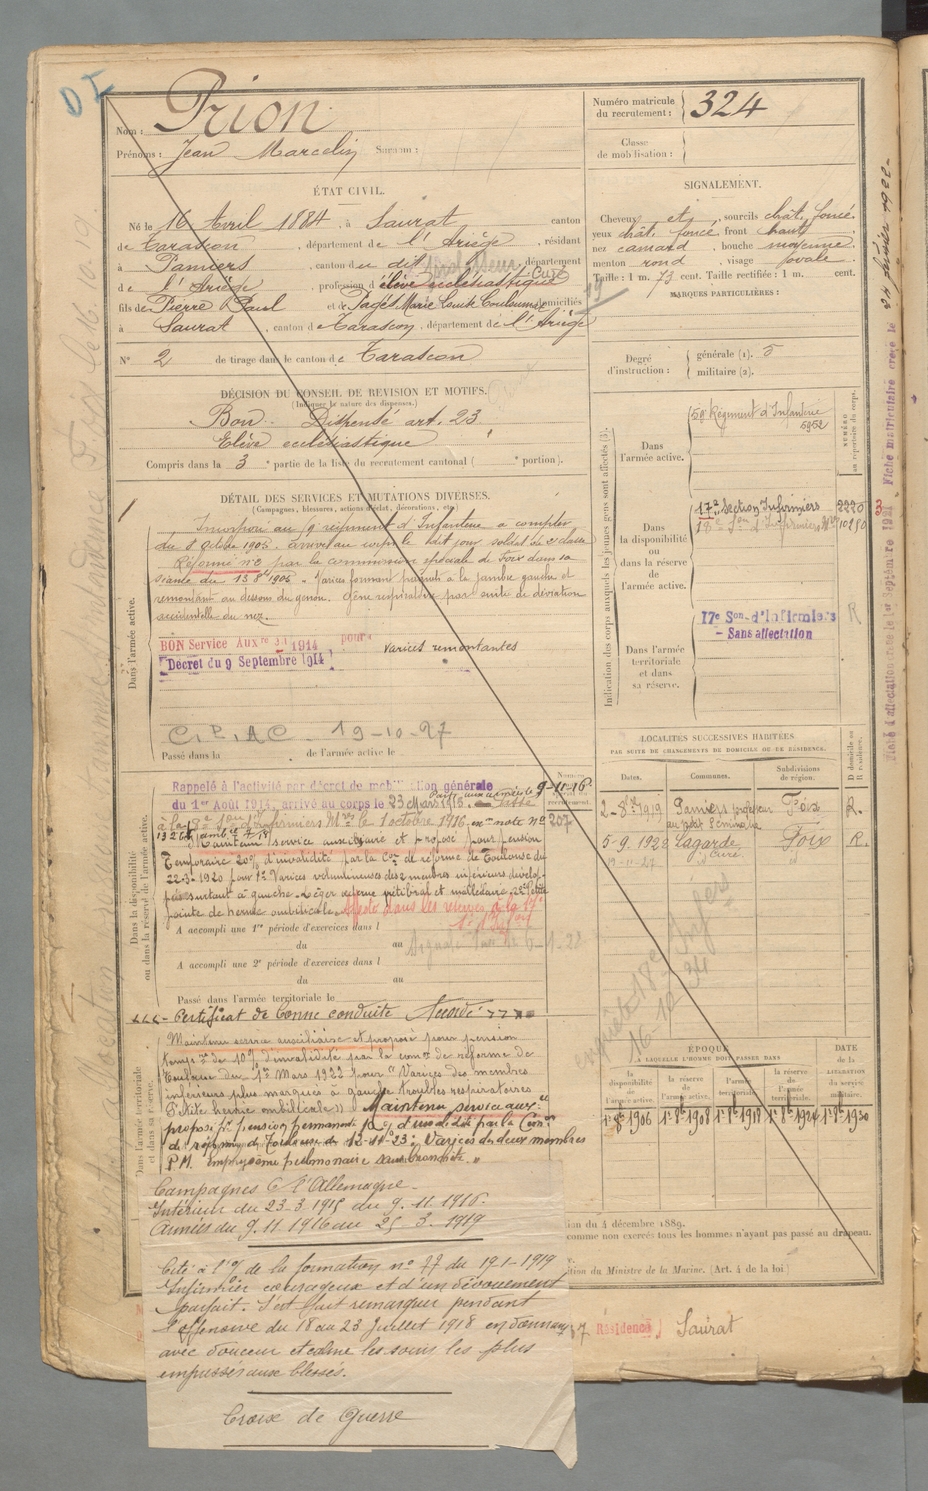 Prion
Nom :
Prénoms : Jean Marcelin Surnom :
Numéro matricule du recrutement : 324
Classe de mobilisation :
ÉTAT CIVIL.
Né le 16 Avril 1884, à Saurat canton
de Tarascon, département de l'Ariège, résidant
à Pamiers, canton du dit, département
de l'Ariège, profession d'élève ecclésiastique Curé
fils de Pierre Paul et de Pagès Marie domiciliés
à Saurat, canton de Tarascon, département de l'Ariège
N° 2 de tirage dans le canton de Tarascon
SIGNALEMENT.
Cheveux et sourcils chât. foncé.
yeux chât. foncé, front haut
nez camard, bouche moyenne
menton rond, visage ovale
Taille : 1 m. 73 cent. Taille rectifiée : 1 m. cent.
MARQUES PARTICULIÈRES :
Degré d'instruction : générale (1). 5
militaire (2).
DÉCISION DU CONSEIL DE REVISION ET MOTIFS.
(Indiquer la nature des dispenses.)
Bon. Dispensé art. 23
Elève ecclésiastique
Compris dans la 3e partie de la liste du recrutement cantonal ( e portion).
DÉTAIL DES SERVICES ET MUTATIONS DIVERSES.
(Campagnes, blessures, actions d'éclat, décorations, etc.)
Incorporé au 59 régiment d'Infanterie à compter
du 8 Octobre 1905. arrivé au corps le dit jour soldat de 2e classe
Réformé n°2 par la commission spéciale de Foix dans sa
séance du 13 8bre 1905. Varices formant paquets à la jambe gauche et
remontant au dessous du genou. Gêne respiratoire par suite de déviation
accidentelle du nez.
BON Service Auxre 1914 pour varices remontantes
Décret du 9 Septembre 1914
C.P.A.C. 19-10-27
Passé dans la de l'armée active le
Dans l'armée active.
Rappelé à l'activité par décret de mobilisation générale
du 1er Août 1914, arrivé au corps le 23 Mars 1915. Passé
Parti aux armées le 9-11-16
à la 18e Son d'Infirmiers Mres le 1 octobre 1916 note n° 207
Maintenu service auxiliaire et proposé pour pension
Temporaire 20% d'invalidité par la Con de réforme de Toulouse du
22-3-1920 pour 1° Varices volumineuses des 2 membres inférieurs dévelop-
pées surtout à gauche. Léger œdème prétibial et malléolaire, 2° Petite
pointe de hernie ombilicale. Affecté dans les réserves à la 17e
A accompli une 1re période d'exercices dans l
du au
A accompli une 2e période d'exercices dans l
du au
Passé dans l'armée territoriale le
Certificat de bonne conduite Accordé
Dans la disponibilité ou dans la réserve de l'armée active.
Maintenu service auxiliaire et proposé pour pension
temp re de 10% d'invalidité par la com on de réforme de
Toulouse du 1er Mars 1922 pour "Varices des membres
inférieurs plus marqués à gauche, troubles respiratoires
Petite hernie ombilicale)) Maintenu service aux re
proposé pr pension permanente d'invalidité par la Con
de réforme de Toulouse du 12-11-23: Varices des deux membres
P.M. Emphysème pulmonaire sans bronchite."
Dans l'armée territoriale et dans sa réserve.
Campagnes C l'Allemagne.
Intérieur du 23-3-1915 au 9-11-1916.
Armées du 9.11.1916 au 25-3-1919
Cité à l'o/ de la formation n° 77 du 19-1-1919
Infirmier courageux et d'un dévouement
parfait. S'est fait remarquer pendant
l'offensive du 18 au 23 Juillet 1918 en donnant
avec douceur et calme les soins les plus
empressés aux blessés.
Croix de Guerre
Indication des corps auxquels les jeunes gens sont affectés (3).
NUMÉRO au répertoire du corps.
Dans l'armée active.
59e Régiment d'Infanterie
5952
Dans la disponibilité ou dans la réserve de l'armée active.
17e Section Infirmiers 2220
18e Son d'Infirmiers Mres 10250
17e Son d'Infirmiers
- Sans affectation
R
Dans l'armée territoriale et dans sa réserve.
LOCALITÉS SUCCESSIVES HABITÉES
PAR SUITE DE CHANGEMENTS DE DOMICILE OU DE RÉSIDENCE.
Dates. Communes. Subdivisions de région. D domicile ou R résidence.
2-8bre 1919 Pamiers professeur au petit Séminaire Foix R.
5-9.1922 Lagarde Foix R.
19-11-27 Curé id
enquête 18e Infers
16-10-34
ÉPOQUE
À LAQUELLE L'HOMME DOIT PASSER DANS
la disponibilité de l'armée active. la réserve de l'armée active. l'armée territoriale. la réserve de l'armée territoriale.
DATE de la libération du service militaire.
1er 8bre 1906 1er 8bre 1908 1er 8bre 1918 1er 8bre 1924 1er 8bre 1930
ion du 4 décembre 1889.
comme non exercés tous les hommes n'ayant pas passé au drapeau.
tion du Ministre de la Marine. (Art. 4 de la loi
Résidence Saurat
Fiche matriculaire créée le 24 février 1922